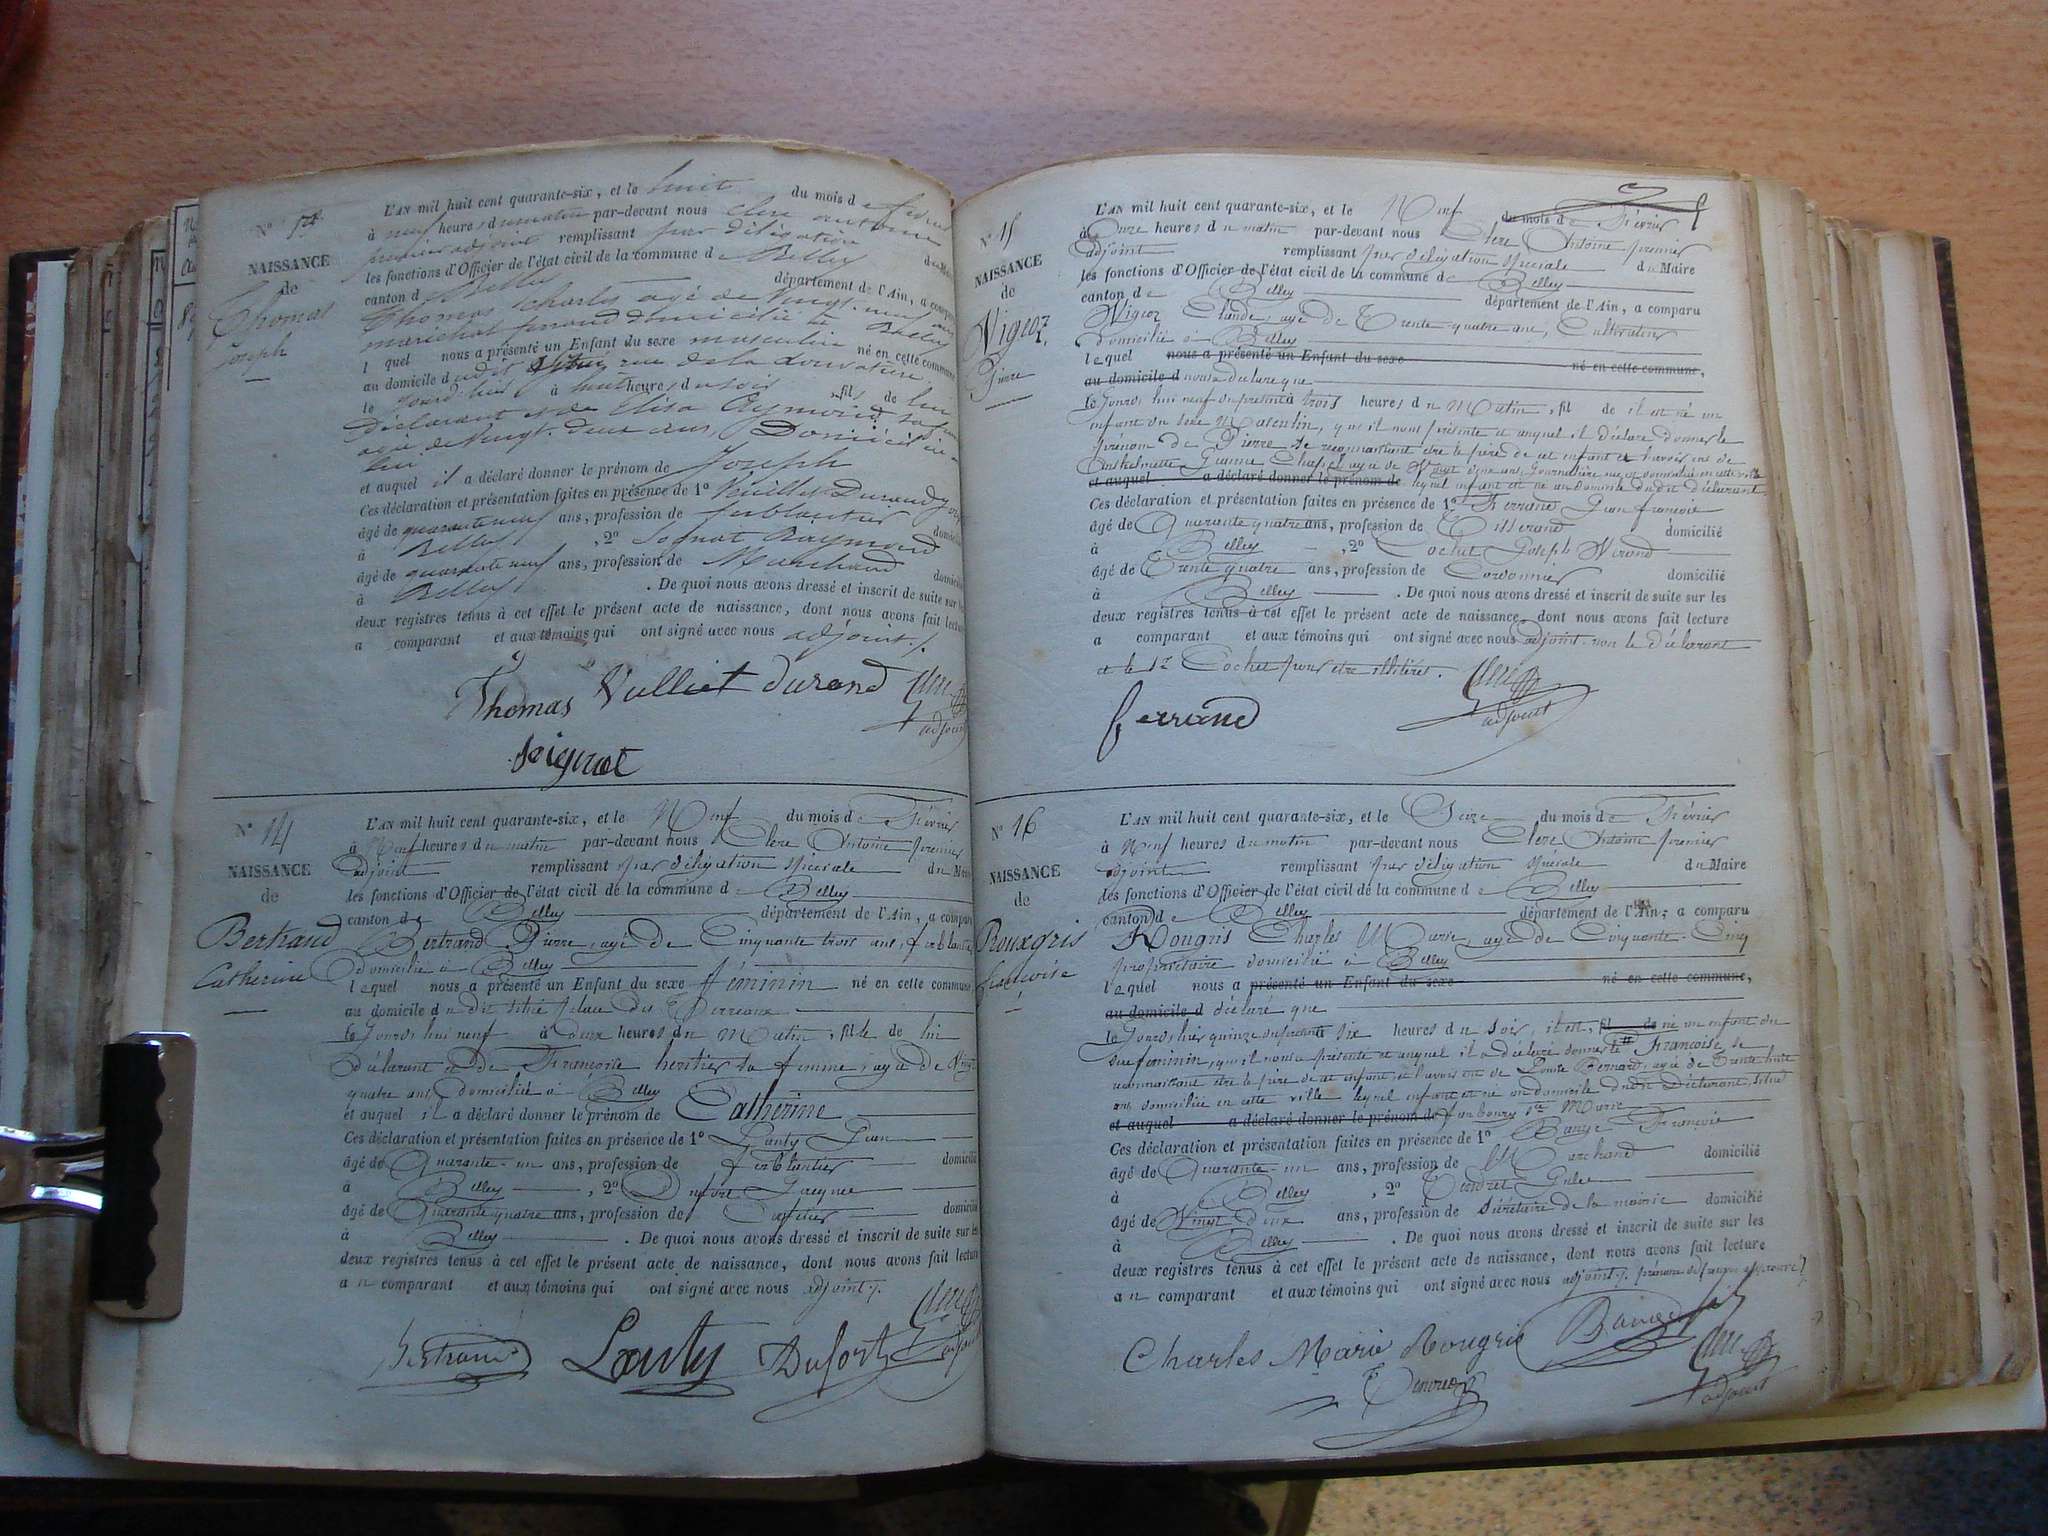 N° 13
NAISSANCE
de
Thomas
joseph
L'AN mil huit cent quarante-six, et le huit du mois de février
à neuf heures du matin par-devant nous Clerc antoine
premier adjoint remplissant par délégation
les fonctions d'Officier de l'état civil de la commune de Belley
canton d Belley département de l'Ain, a comparu
Thomas Charles agé de Vingt-neuf ans
maréchal ferrand domicilié à Belley
l quel nous a présenté un Enfant du sexe masculin né en cette commune
au domicile dudit rue de la
le jourd'hui à huit heures du soir, fils de lui
Déclarant et de Elisa Aymond sa femme
agée de Vingt-deux ans, Domicilié
et auquel il a déclaré donner le prénom de Joseph
Ces déclaration et présentation faites en présence de 1° Veuillet Durand
âgé de quarante neuf ans, profession de ferblantier
à Belley, 2° Sognat Raymond
âgé de quarante neuf ans, profession de Marchand
à Belley. De quoi nous avons dressé et inscrit de suite sur les
deux registres tenus à cet effet le présent acte de naissance, dont nous avons fait lecture
a comparant et aux témoins qui ont signé avec nous adjoint./.
Thomas Vulliet durand Clerc
adjoint
Seignat
N° 14
NAISSANCE
de
Bertrand
Catherine
L'AN mil huit cent quarante-six, et le Neuf du mois de Février
à Neuf heures du matin par-devant nous Clerc Antoine premier
adjoint remplissant par délégation spéciale du Maire
les fonctions d'Officier de l'état civil de la commune de Belley
canton de Belley département de l'Ain, a comparu
Bertrand Pierre, agé de Cinquante trois ans, ferblantier
domicilié à Belley
lequel nous a présenté un Enfant du sexe féminin né en cette commune
au domicile du dit situé place des Terreaux
le Jourd'hui neuf à deux heures du Matin, fille de lui
déclarant et de Françoise heritier sa femme, agée de Vingt
quatre ans domiciliée à Belley
et auquel il a déclaré donner le prénom de Catherine
Ces déclaration et présentation faites en présence de 1° Lauty Jean
âgé de Quarante-un ans, profession de ferblantier domicilié
à Belley, 2° Dufort Jacques
âgé de Quarante quatre ans, profession de domicilié
à Belley. De quoi nous avons dressé et inscrit de suite sur les
deux registres tenus à cet effet le présent acte de naissance, dont nous avons fait lecture
au comparant et aux témoins qui ont signé avec nous adjoint./.
Bertrand Lauty Dufort Clerc
N° 15
NAISSANCE
de
Vigeoz
Pierre
L'AN mil huit cent quarante-six, et le Neuf du mois de Février
à Onze heures du matin par-devant nous Clerc Antoine premier
adjoint remplissant par délégation spéciale du Maire
les fonctions d'Officier de l'état civil de la commune de Belley
canton de Belley département de l'Ain, a comparu
Vigeoz Claude, agé de Trente quatre ans, Cultivateur
domicilié à Belley
lequel nous a présenté un Enfant du sexe né en cette commune,
au domicile d nous a declaré que
le Jourd'hui neuf du présent à trois heures du Matin, fil de il est né un
enfant du sexe Masculin, qu'il nous présente et auquel il déclare donner le
prénom de Pierre se reconnaissant être le père de cet enfant et l'avoir eu de
Anthelmette Jeanne Chapel agée de Vingt deux ans, Journalière domiciliée en cette ville
et auquel a déclaré donner le prénom de lequel enfant est né au domicile dudit déclarant.
Ces déclaration et présentation faites en présence de 1° Ferrand Jean françois
âgé de Quarante quatre ans, profession de Tisserand domicilié
à Belley, 2° Cochet Joseph Nirond
âgé de Trente quatre ans, profession de Cordonnier domicilié
à Belley. De quoi nous avons dressé et inscrit de suite sur les
deux registres tenus à cet effet le présent acte de naissance, dont nous avons fait lecture
a comparant et aux témoins qui ont signé avec nous adjoint non le déclarant
et le Sr Cochet pour etre illitérés. Clerc
adjoint
ferrand
N° 16
NAISSANCE
de
Rouxgris
françoise
L'AN mil huit cent quarante-six, et le Seize du mois de Février
à Neuf heures du matin par-devant nous Clerc Antoine premier
adjoint remplissant par délégation spéciale du Maire
les fonctions d'Officier de l'état civil de la commune de Belley
canton de Belley département de l'Ain, a comparu
Rougris Charles Marie, agé de Cinquante-Cinq
propriétaire domicilié à Belley
lequel nous a présenté un Enfant du sexe né en cette commune,
au domicile d déclaré que
le Jourd'hier quinze du présent à six heures du soir, il est, fil de né un enfant du
sexe féminin, qu'il nous a présenté et auquel il a déclaré donner le Françoise se
reconnaissant être le père de cet enfant, et l'avoir eu de Louise Bernard, agée de Trente huit
ans domiciliée en cette ville lequel enfant est né au domicile dudit Déclarant, situé
et auquel a déclaré donner le prénom de faubourg Ste Marie
Ces déclaration et présentation faites en présence de 1° François
âgé de Quarante-un ans, profession de Marchand domicilié
à Belley, 2° Jules
âgé de Vingt deux ans, profession de Sécrétaire de la mairie domicilié
à Belley. De quoi nous avons dressé et inscrit de suite sur les
deux registres tenus à cet effet le présent acte de naissance, dont nous avons fait lecture
au comparant et aux témoins qui ont signé avec nous adjoint./. prénom
Charles Marie Rougris Clerc
adjoint